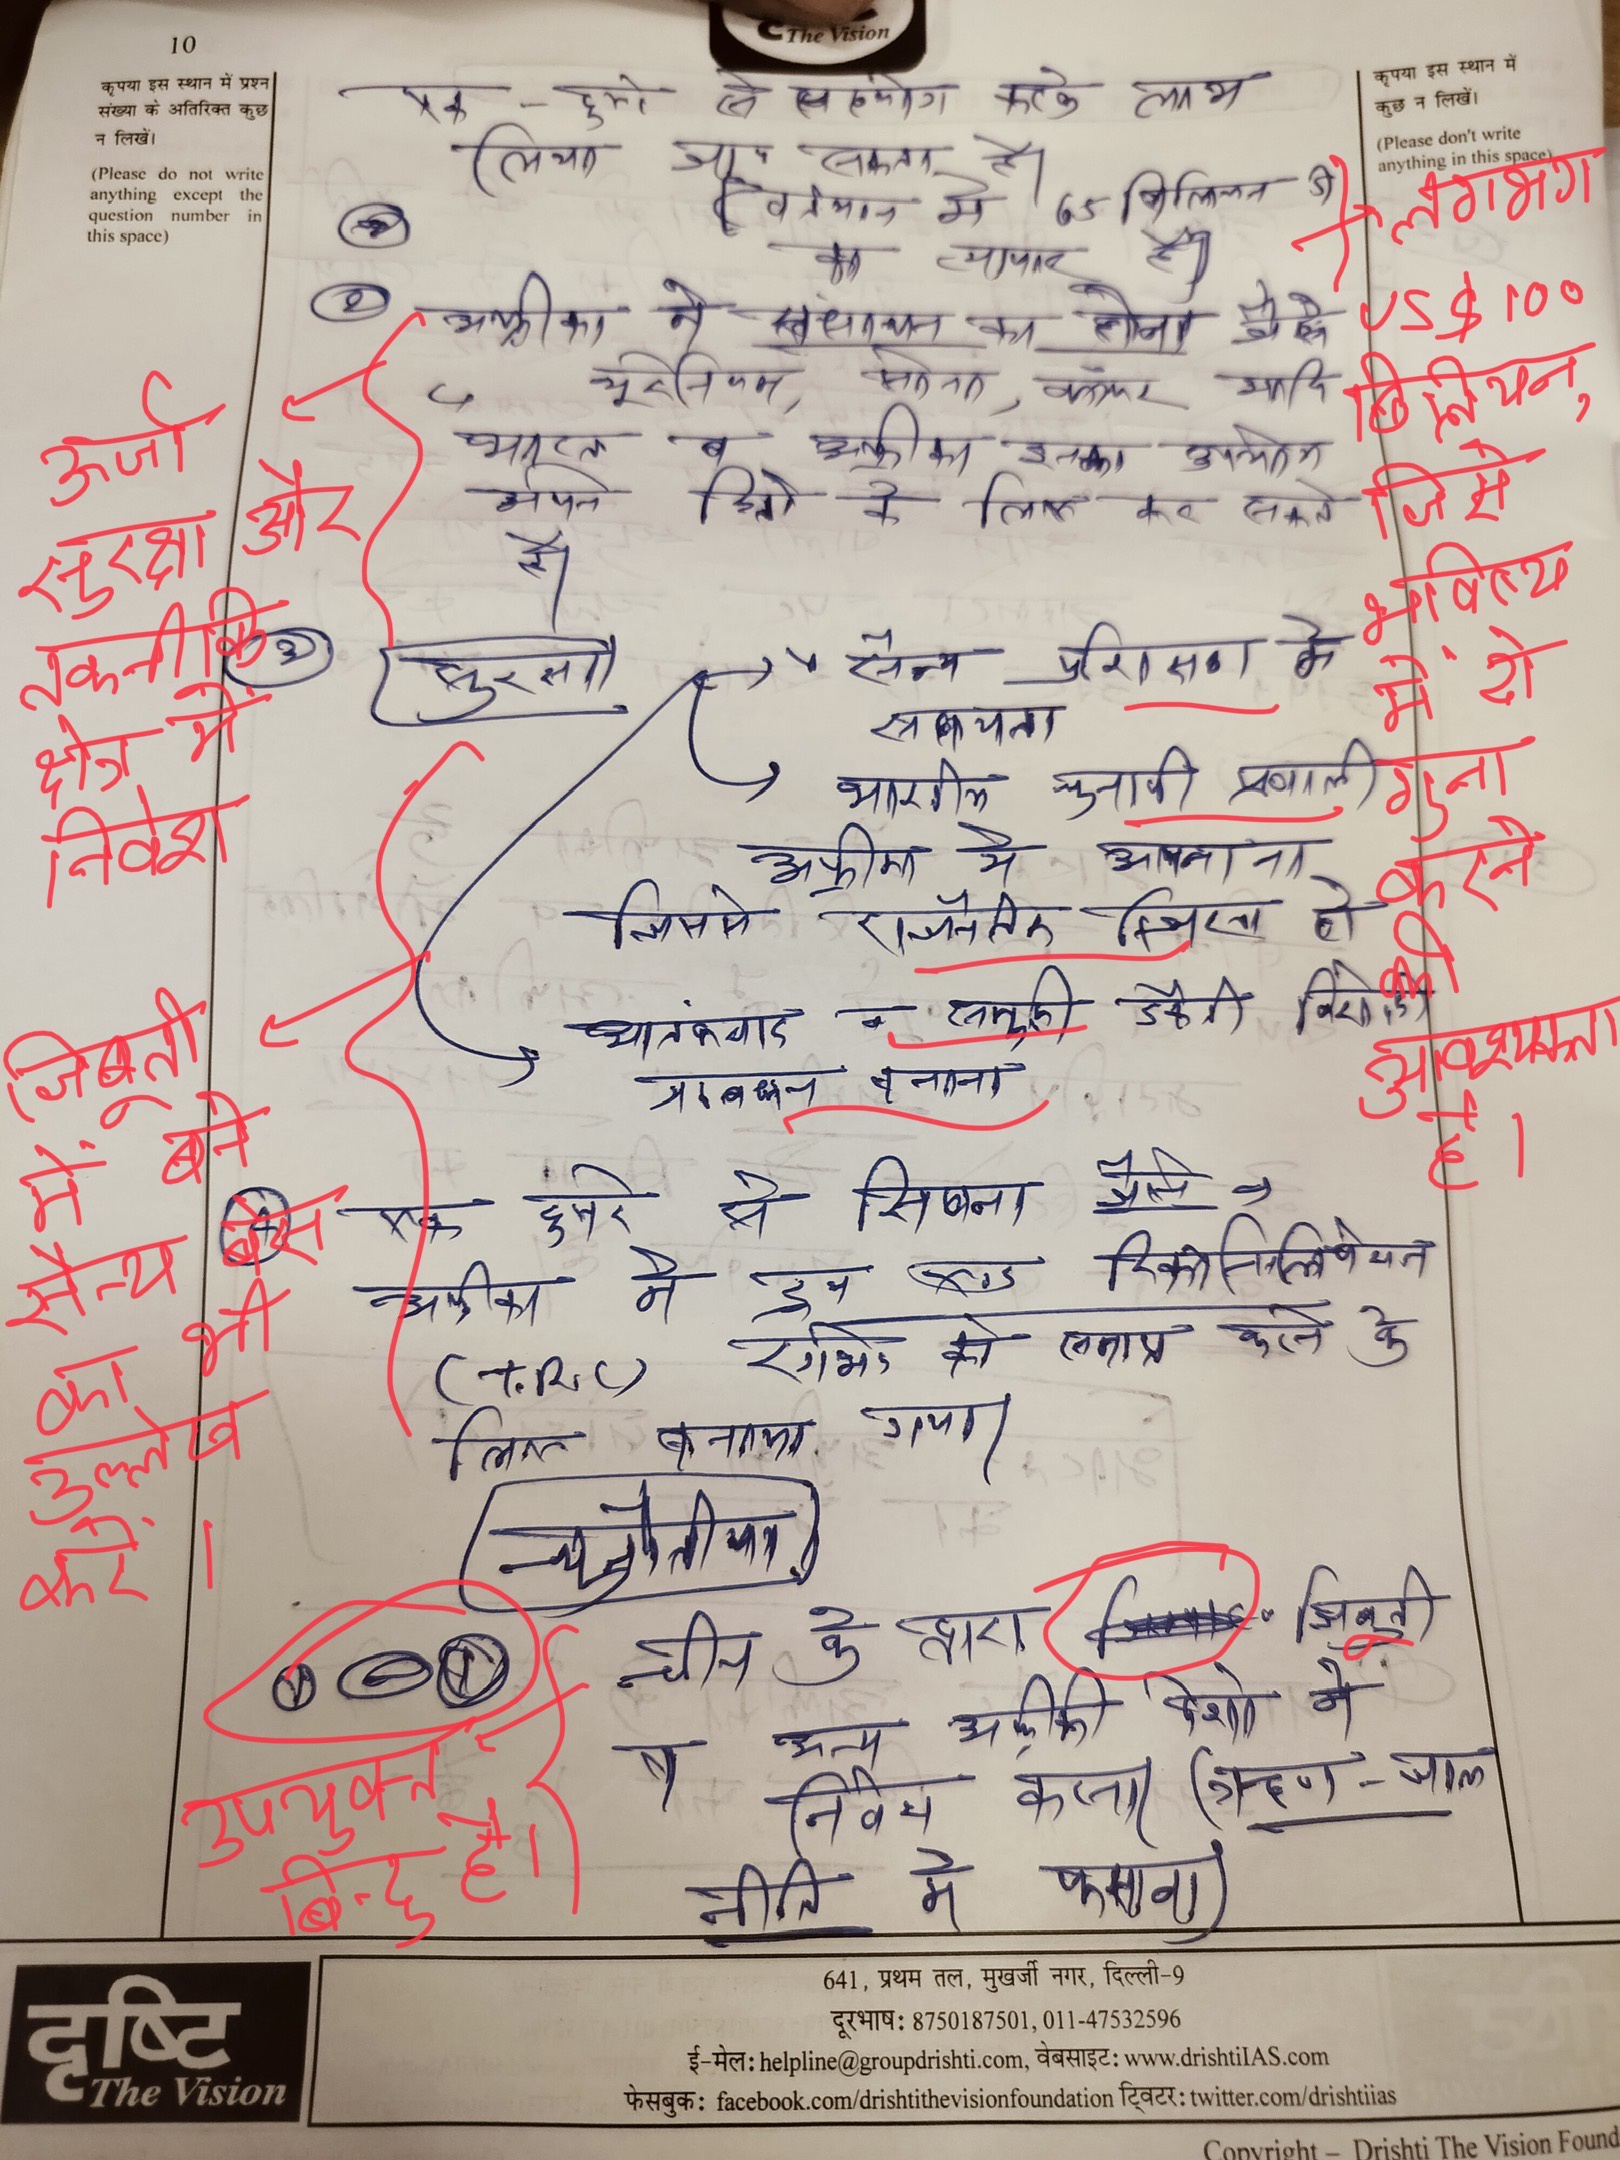 The Vision
10
कृपया इस स्थान में प्रश्न
संख्या के अतिरिक्त कुछ
न लिखें।
(Please do not write
anything except the
question number in
this space)
कृपया इस स्थान में
कुछ न लिखें।
(Please don't write
anything in this space)
एक - दुसरे से सहयोग करके लाभ
लिया जा सकता है।
वर्तमान में 65 बिलियन डॉ
का व्यापार है।
लगभग
US $ 100
बिलियन,
जिसे
भविष्य
में दो
गुना
करने
की
आवश्यकता
है।
② अफ्रीका में संसाधन का होना जैसे
यूरेनियम, सोना, कॉपर आदि
भारत व अफ्रीका इनका उपयोग
अपने हितो के लिए कर सकते
है।
ऊर्जा
सुरक्षा और
तकनीकि
क्षेत्र में
निवेश
③ सुरक्षा
सैन्य प्रशिक्षण में
सहायता
भारतीय चुनावी प्रणाली
अफ्रीका में अपनाना
जिससे राजनैतिक स्थिरता हो
आतंकवाद व समुद्री डकैती विरोधी
प्रावधान बनाना
जिबूती
में बने
सैन्य बेस
का भी
उल्लेख
करें।
④ एक दुसरे से सिखना जैसे
अफ्रीका में ट्रुथ एण्ड रिकांसिलियेशन
(T.R.C) रंगभेद को समाप्त करने के
लिए बनाया गया।
चुनौतीयां
① चीन के द्वारा जिबूती
व अन्य अफ्रीकी देशो में
निवेश करना (ऋण - जाल
नीति में फसाना)
उपयुक्त
बिन्दु है।
दृष्टि
The Vision
641, प्रथम तल, मुखर्जी नगर, दिल्ली-9
दूरभाष: 8750187501, 011-47532596
ई-मेल: helpline@groupdrishti.com, वेबसाइट: www.drishtiIAS.com
फेसबुक: facebook.com/drishtithevisionfoundation ट्विटर: twitter.com/drishtiias
Copyright – Drishti The Vision Found